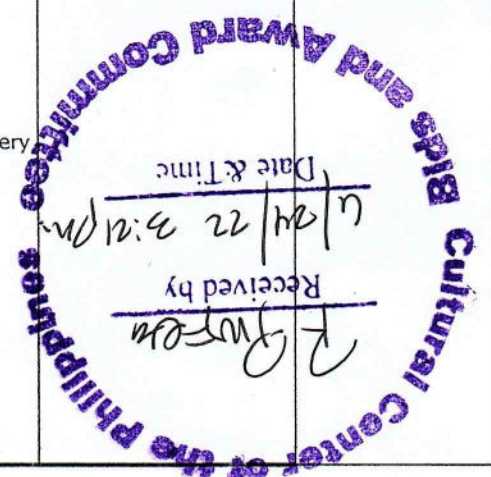 ery
Cultural Center of the Philippines
Bids and Award Committee
Received by
24/22 3:21pm
Date & Time